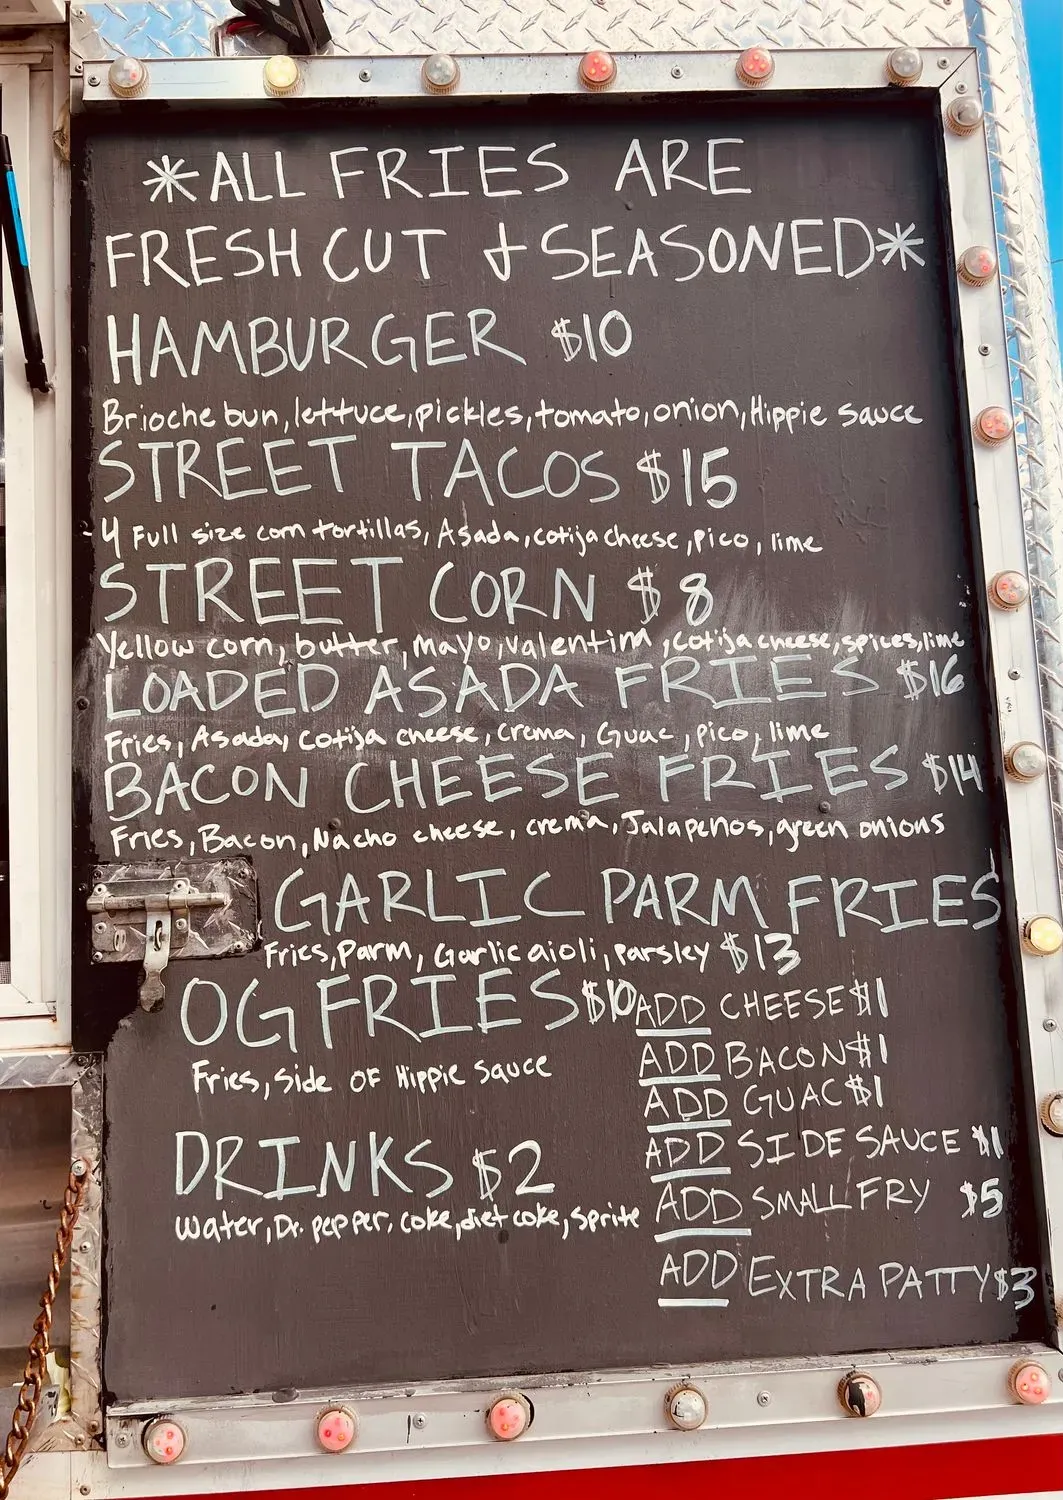 *ALL FRIES ARE
FRESH CUT & SEASONED*
HAMBURGER $10
Brioche bun, lettuce, pickles, tomato, onion, Hippie sauce
STREET TACOS $15
-4 Full size corn tortillas, Asada, cotija cheese, pico, lime
STREET CORN $8
Yellow corn, butter, mayo, valentina, cotija cheese, spices, lime
LOADED ASADA FRIES $16
Fries, Asada, cotija cheese, crema, Guac, pico, lime
BACON CHEESE FRIES $14
Fries, Bacon, Nacho cheese, crema, Jalapenos, green onions
GARLIC PARM FRIES
Fries, Parm, Garlic aioli, parsley $13
OG FRIES $10
Fries, side of Hippie sauce
DRINKS $2
water, Dr. pepper, coke, diet coke, sprite
ADD CHEESE $1
ADD BACON $1
ADD GUAC $1
ADD SIDE SAUCE $1
ADD SMALL FRY $5
ADD EXTRA PATTY $3